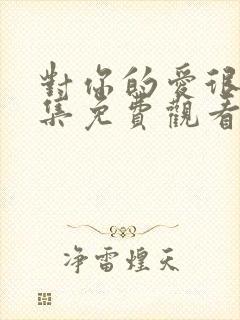 對你的愛很
集免費觀看
净雷煌天